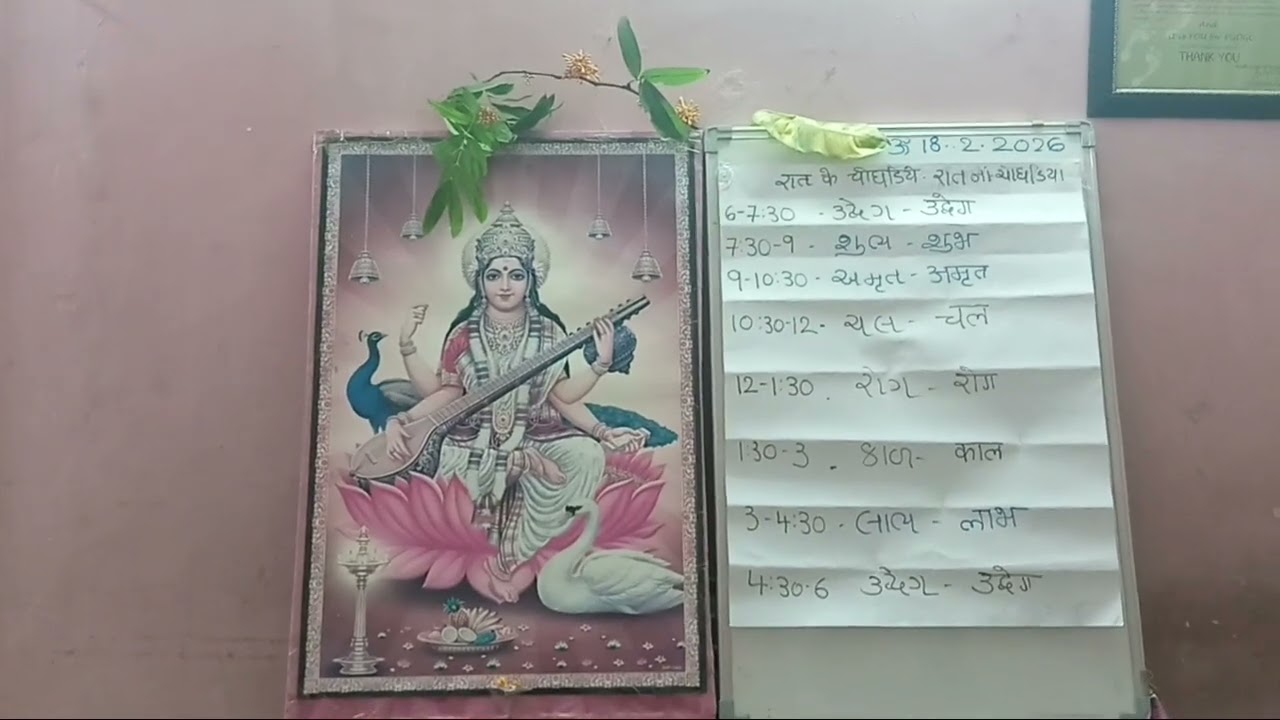 AND
THANK YOU
ॐ 18.2.2026
रात के चौघडिये - રાત નાં ચોઘડિયા
6-7:30 - ઉદ્વેગ - उद्वेग
7:30-9 - શુભ - शुभ
9-10:30 - અમૃત - अमृत
10:30-12 - ચલ - चल
12-1:30 . રોગ - रोग
1:30-3 . કાળ - काल
3-4:30 - લાભ - लाभ
4:30-6 ઉદ્વેગ - उद्वेग